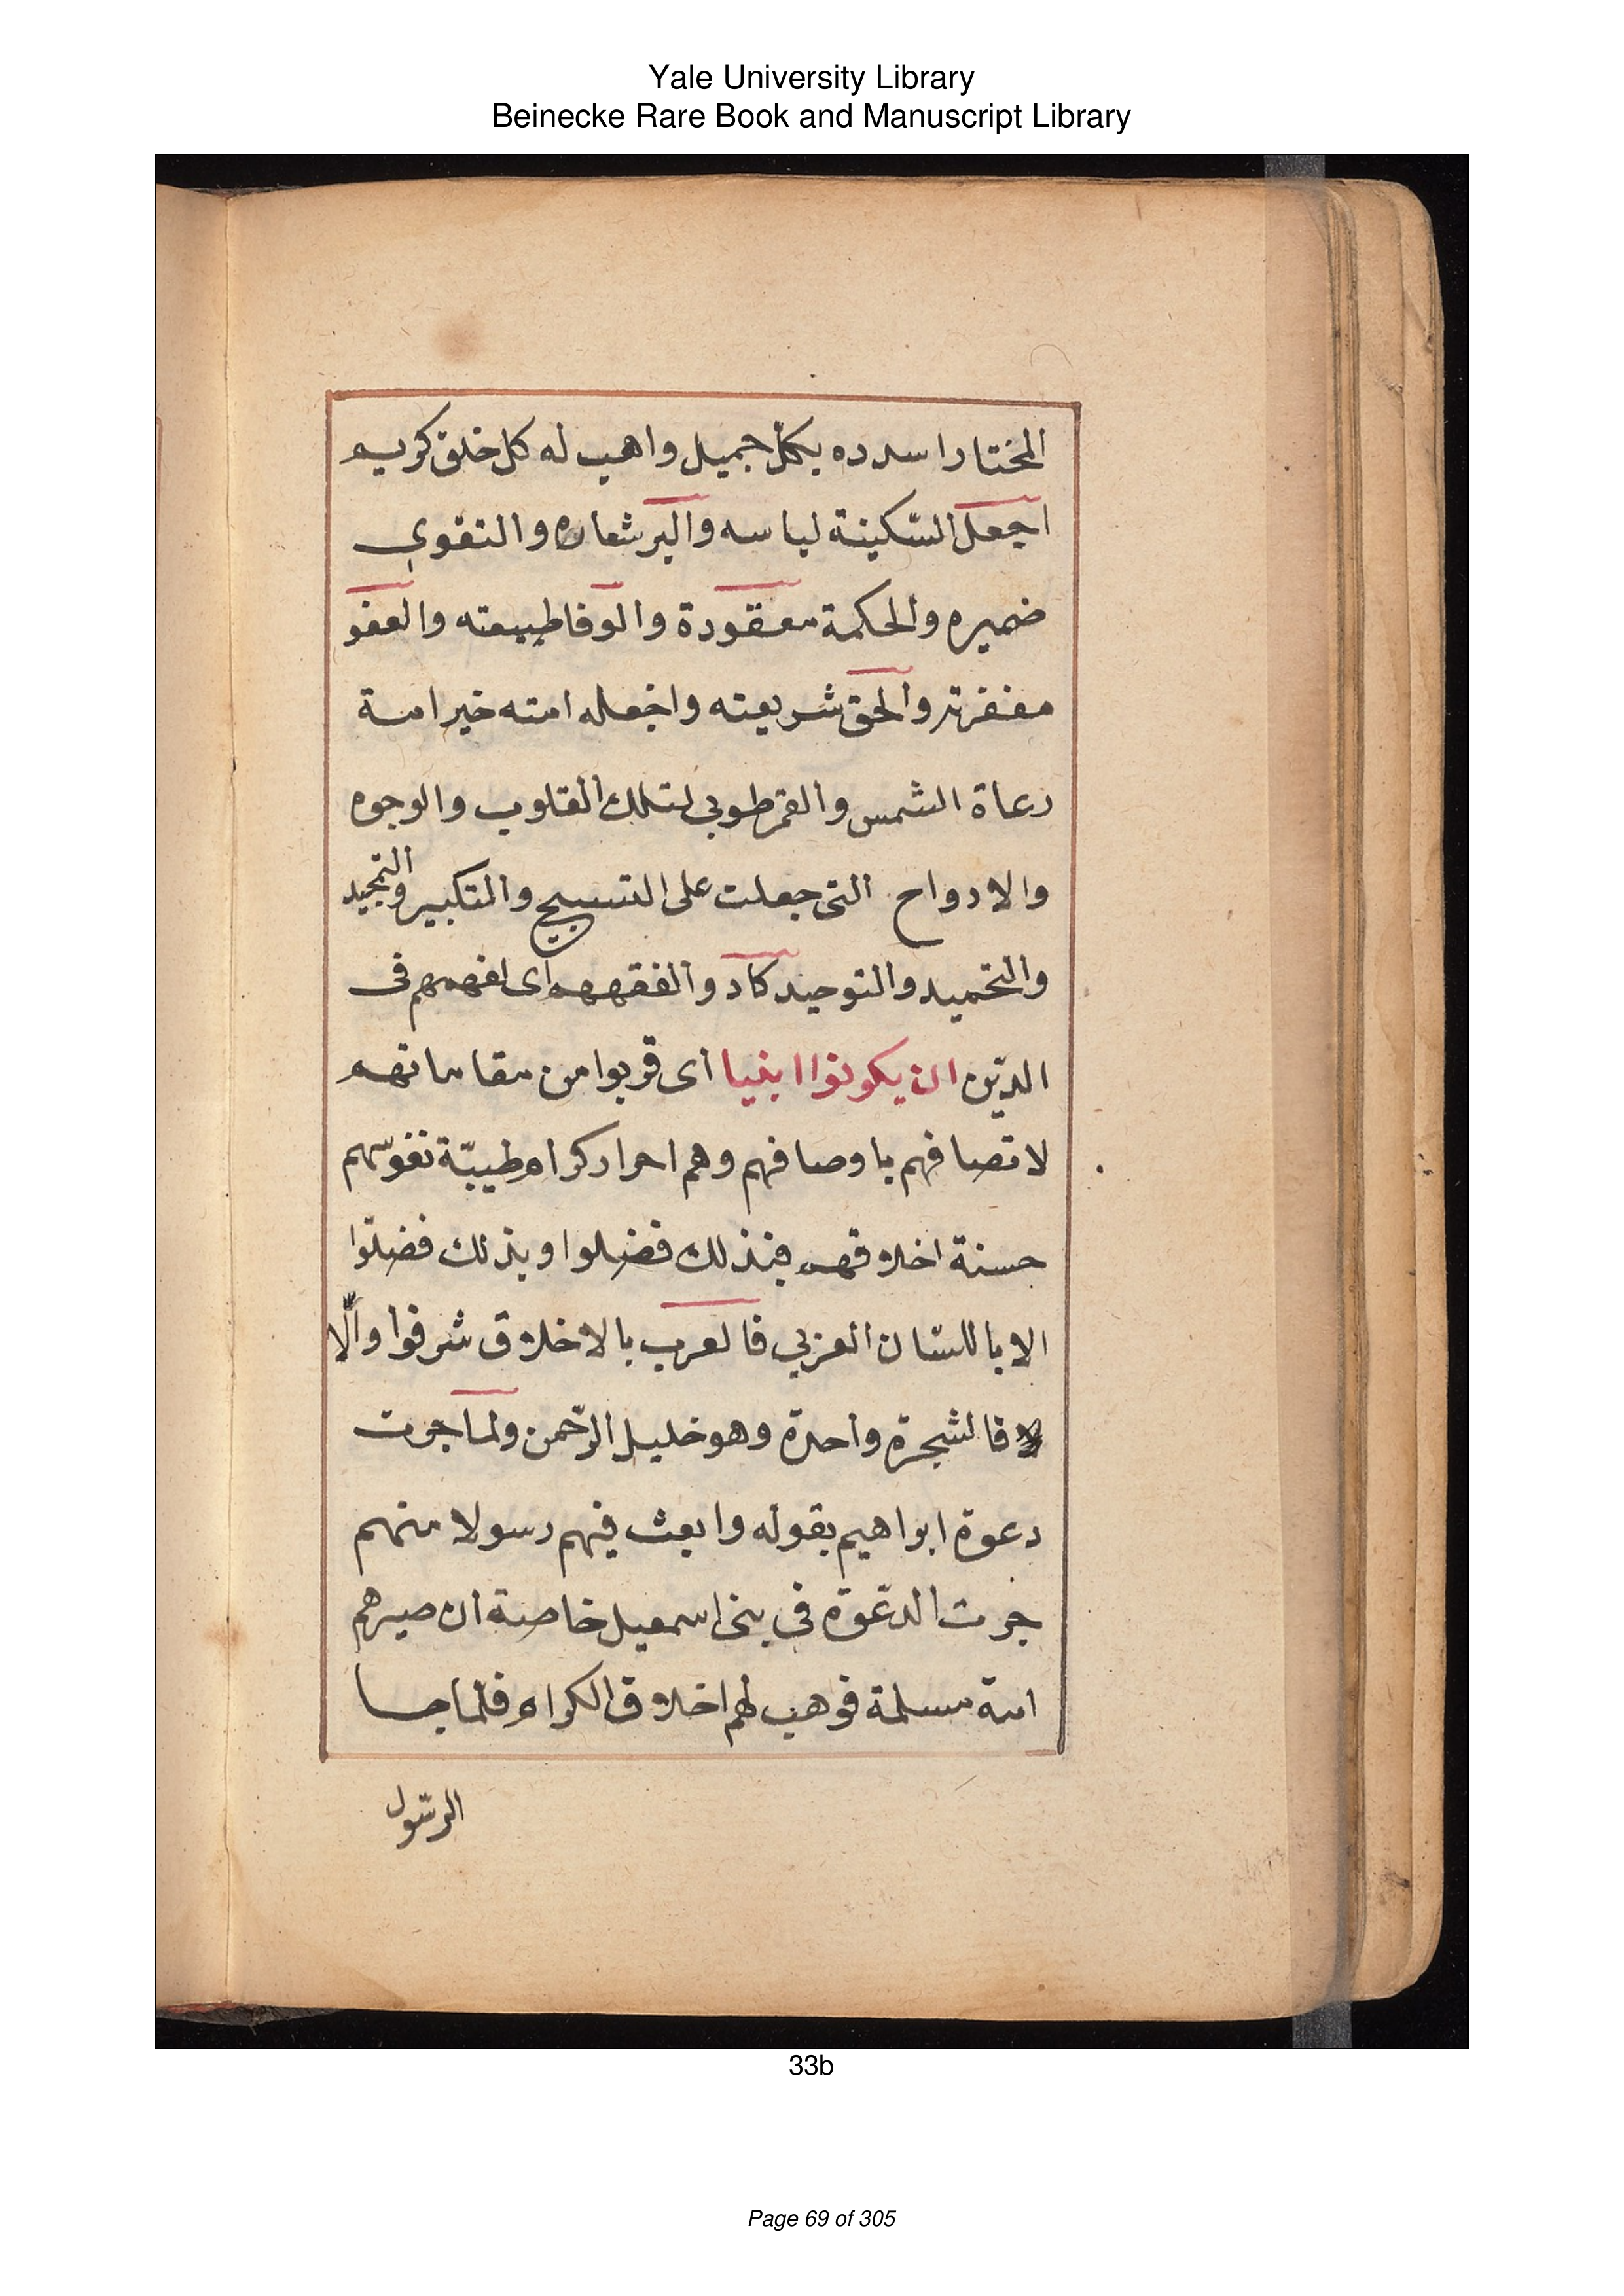 Yale University Library
Beinecke Rare Book and Manuscript Library
المختار اسدده بكل جميل واهب له كل خلق كريم
اجعل السّكينة لباسه والبر شعاره والتقوى
ضميره والحكمة معقودة والوفا طبيعته والعفو
مغفرته والحق شريعته واجعله امته خير امة
رعاة الشمس والقمر طوبي لتلك القلوب والوجوه
والارواح التى جعلت على التسبيح والتكبير والتمجيد
والتحميد والتوحيد كاد والفقههم اى افهمهم فى
الدّين ان يكونوا انبيا اى قربوا من مقاماتهم
لاتصافهم باوصافهم وهم احرار كرام طيبّة نفوسّهم
حسنة اخلاقهم فبذلك فضلوا وبذلك فضلّوا
الا باللسّان العربي فالعرب بالاخلاق شرفوا والّا
فالشجرة واحدة وهو خليل الرّحمن ولما جرت
دعوة ابراهيم بقوله وابعث فيهم رسولا منهم
جرت الدعّوة فى بنى اسمعيل خاصة ان صيرهم
امة مسلمة فوهب لهم اخلاق الكرام فلما جا
الرسّول
33b
Page 69 of 305